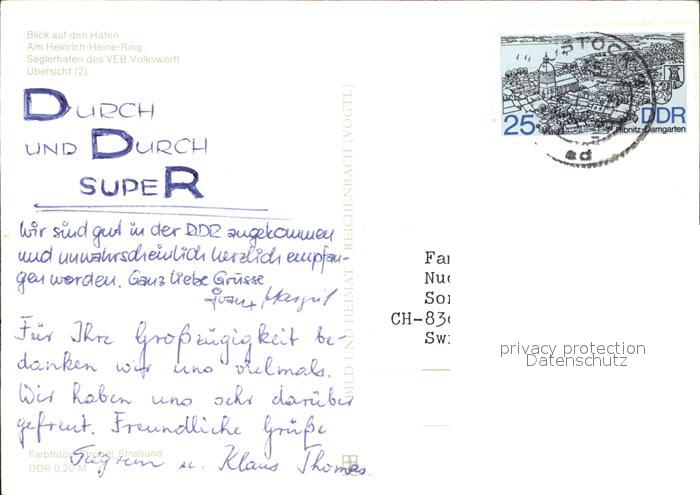 Blick auf den Hafen
Am Heinrich-Heine-Ring
Seglerhafen des VEB Volkswerft
Übersicht (2)
DURCH
UND DURCH
SUPER
Wir sind gut in der DDR angekommen
und unwahrscheinlich herzlich empfan-
gen worden. Ganz liebe Grüsse
Für Ihre Großzügigkeit be-
danken wir uns vielmals.
Wir haben uns sehr darüber
gefreut. Freundliche Grüße
u. Klaus Thomas.
Farbfotos: Strobel, Stralsund
DDR 0,20 M
BILD UND HEIMAT REICHENBACH (VOGTL)
25 DDR
Ribnitz-Damgarten
Fa
Nu
So
CH-83
Sw
privacy protection
Datenschutz